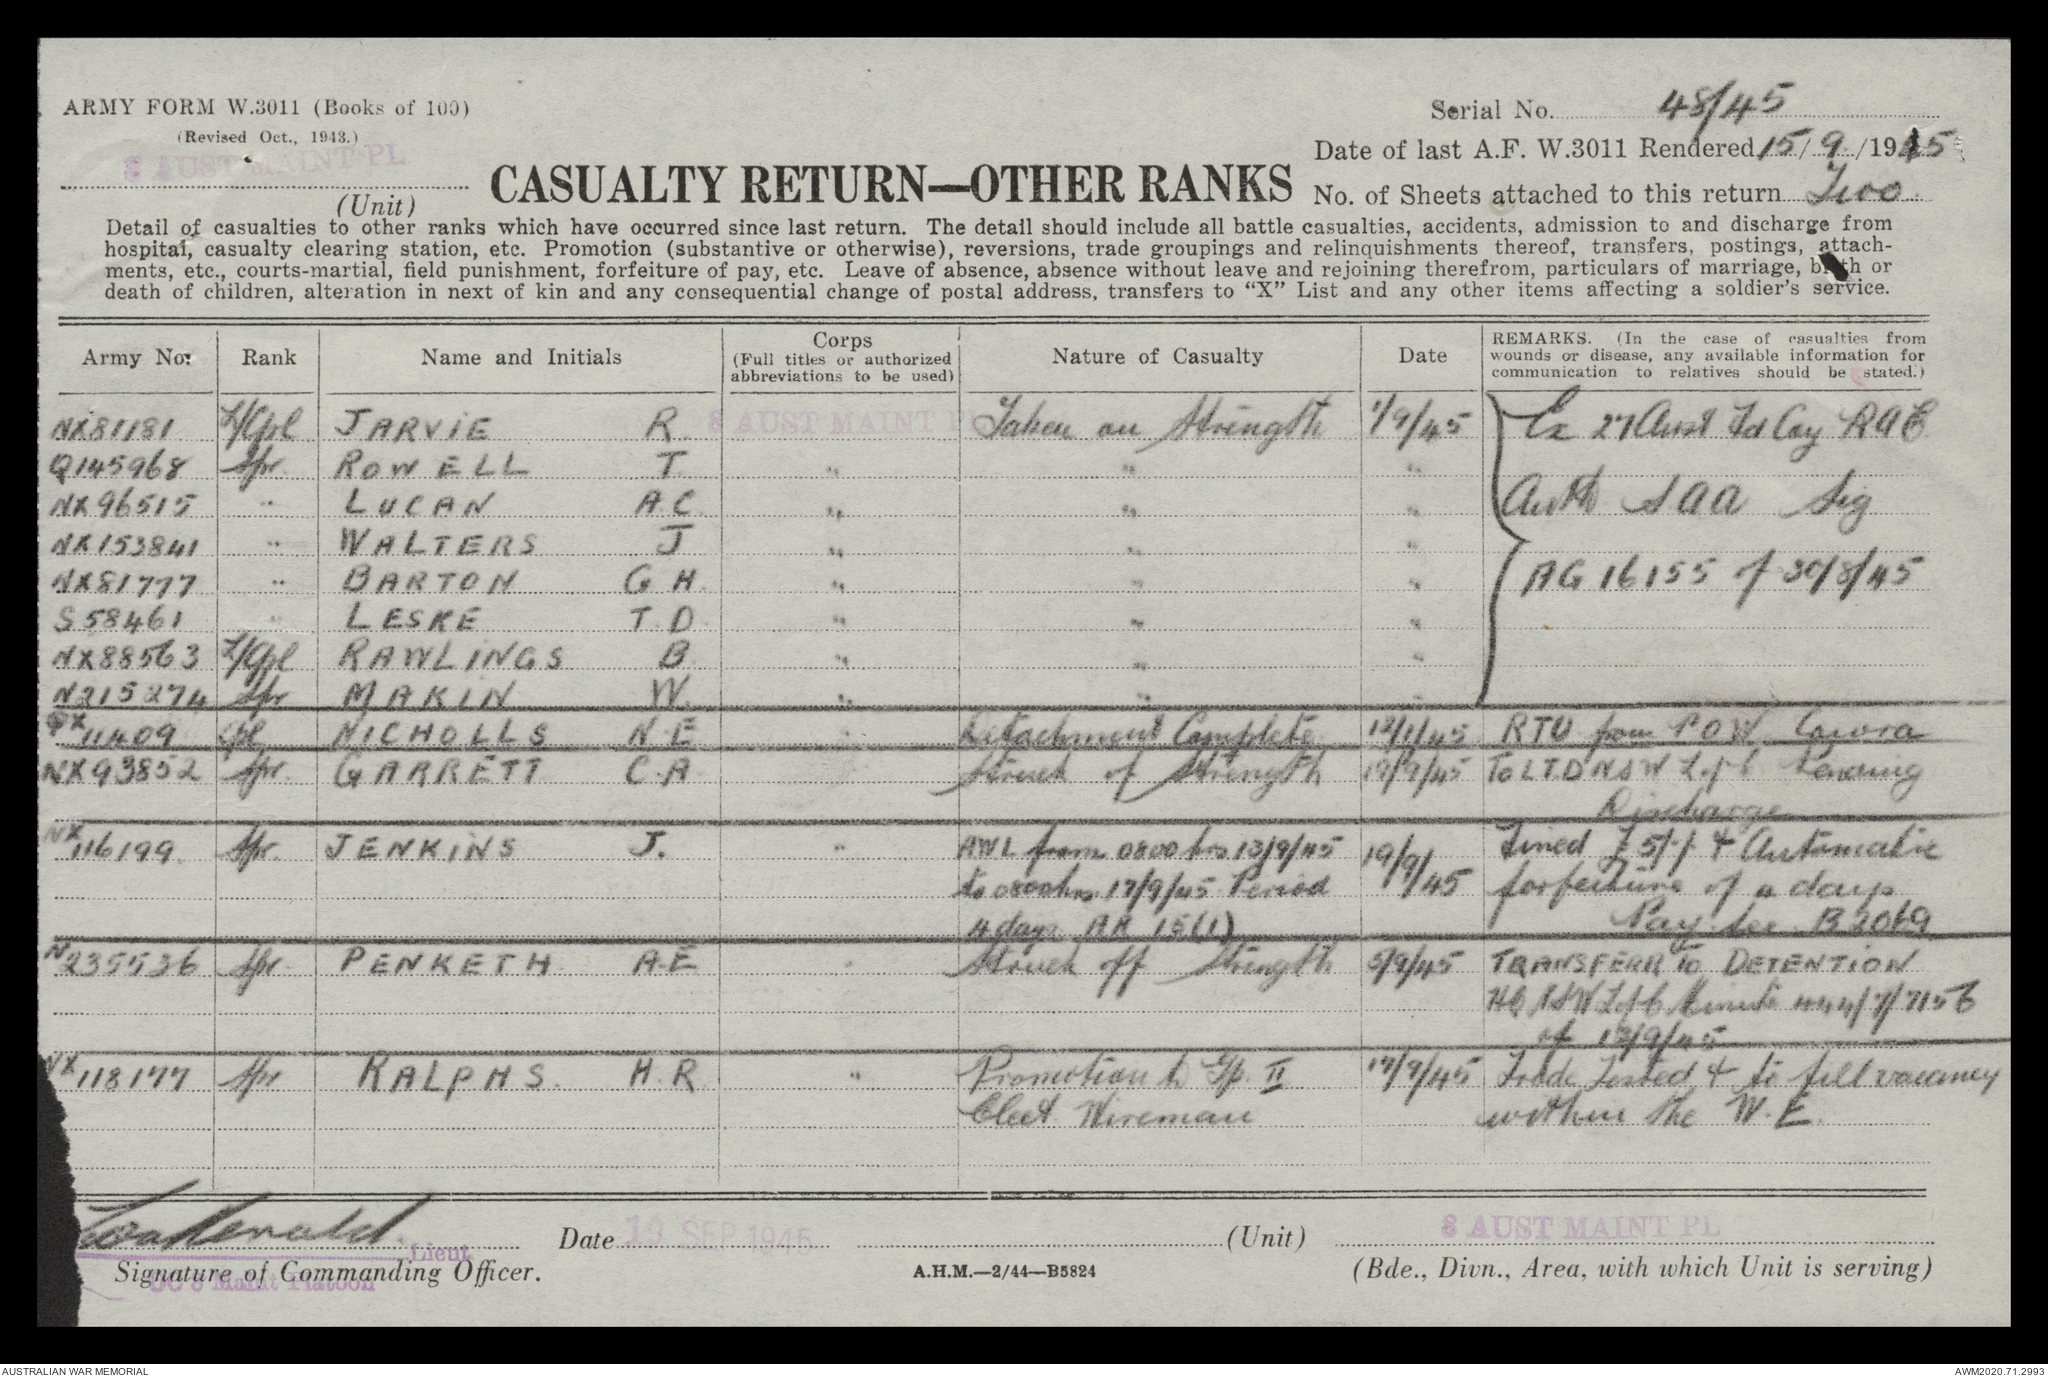 ARMY FORM W.3011 (Books of 100)
(Revised Oct., 1943.)
8 AUST MAINT PL
(Unit)
CASUALTY RETURN—OTHER RANKS
Serial No. 48/45
Date of last A.F. W.3011 Rendered 15/9/1945
No. of Sheets attached to this return Two
Detail of casualties to other ranks which have occurred since last return. The detail should include all battle casualties, accidents, admission to and discharge from
hospital, casualty clearing station, etc. Promotion (substantive or otherwise), reversions, trade groupings and relinquishments thereof, transfers, postings, attach-
ments, etc., courts-martial, field punishment, forfeiture of pay, etc. Leave of absence, absence without leave and rejoining therefrom, particulars of marriage, birth or
death of children, alteration in next of kin and any consequential change of postal address, transfers to "X" List and any other items affecting a soldier's service.
Army No. Rank Name and Initials Corps (Full titles or authorized abbreviations to be used) Nature of Casualty Date REMARKS. (In the case of casualties from wounds or disease, any available information for communication to relatives should be stated.)
NX81181 L/Cpl JARVIE R. 8 AUST MAINT PL Taken on Strength 1/9/45 Ex 27 Aust Fd Coy RAE
Q145968 Spr ROWELL T. " " "
NX96515 " LUCAN A.C. " " " Auth SAA Sig
NX153841 " WALTERS J " " "
NX81777 " BARTON G H. " " " AG 16155 of 30/8/45
S58461 " LESKE T D " " "
NX88563 L/Cpl RAWLINGS B " " "
N215274 Spr MAKIN W. " " "
QX11409 Cpl NICHOLLS N E " Detachment Complete 12/1/45 RTU from POW Cowra
NX93852 Spr GARRETT C.A " Struck of Strength 19/9/45 To LTD NSW L of C Pending
Discharge
NX116199 Spr. JENKINS J. " AWL from 0800 hrs 13/9/45 19/9/45 Fined £5/-/- & Automatic
to 0800hrs 17/9/45 Period forfeiture of 4 days
4 days AR 15(1) Pay. B2069
N235536 Spr. PENKETH A.E " Struck off Strength 5/9/45 TRANSFERR TO DETENTION
HQ NSW L of C Minute 444/7/7156
of 13/9/45
NX118177 Spr RALPHS H.R " Promotion to Gp. II 17/9/45 Trade Tested & to fill vacancy
Elect. Wireman within the W.E.
Lieut.
OC 8 Maint Platoon
Signature of Commanding Officer.
Date 19 SEP 1945
(Unit)
8 AUST MAINT PL
A.H.M.—2/44—B5824
(Bde., Divn., Area, with which Unit is serving)
AUSTRALIAN WAR MEMORIAL
AWM2020.71.2993